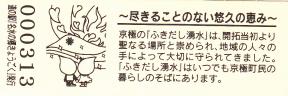 000313
～尽きることのない悠久の恵み～
京極の「ふきだし湧水」は、開拓当初より
聖なる場所と崇められ、地域の人々の
手によって大切に守られてきました。
「ふきだし湧水」はいつでも京極町民の
暮らしのそばにあります。